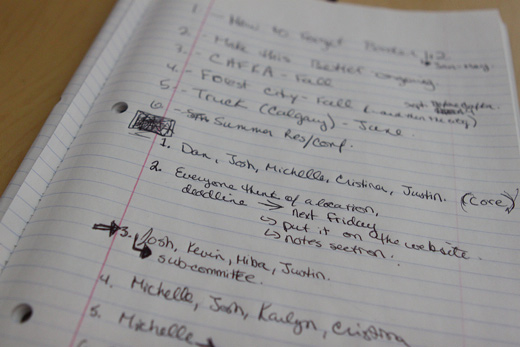 1 - How to forget
2. - Make this better ongoing
3. - CAFKA - Fall
4. - Forest City - Fall
5. - Truck (Calgary) - June
6. - Summer Res/conf.
1. Dan, Josh, Michelle, Cristina, Justin. (Core)
2. Everyone think of a location,
deadline → next Friday
↳ put it on the website
↳ notes section.
3. Josh, Kevin, Hiba, Justin.
subcommittee.
4. Michelle, Josh, Kaitlyn, Cristina
5. Michelle